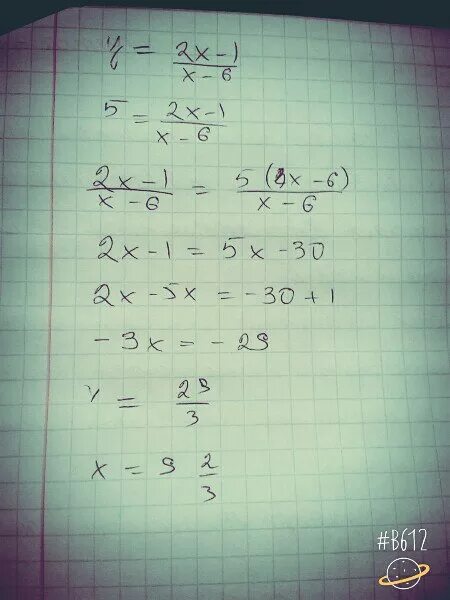 y = (2x - 1)/(x - 6)
5 = (2x - 1)/(x - 6)
(2x - 1)/(x - 6) = 5 (x - 6)/(x - 6)
2x - 1 = 5x - 30
2x - 5x = -30 + 1
-3x = -29
x = 29/3
x = 9 2/3
#B612